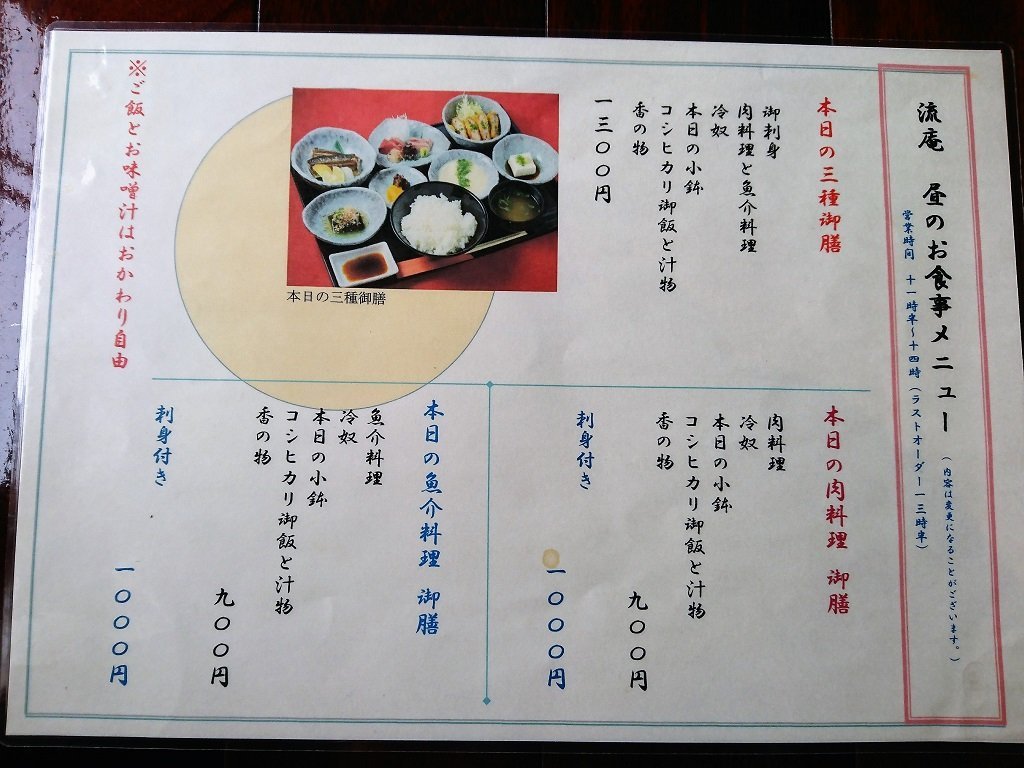 流庵　昼のお食事メニュー（内容は変更になることがございます。）
営業時間　十一時半～十四時（ラストオーダー一三時半）
本日の三種御膳
御刺身
肉料理と魚介料理
冷奴
本日の小鉢
コシヒカリ御飯と汁物
香の物
一三〇〇円
本日の三種御膳
※ご飯とお味噌汁はおかわり自由
本日の肉料理　御膳
肉料理
冷奴
本日の小鉢
コシヒカリ御飯と汁物
香の物
九〇〇円
刺身付き　一〇〇〇円
本日の魚介料理　御膳
魚介料理
冷奴
本日の小鉢
コシヒカリ御飯と汁物
香の物
九〇〇円
刺身付き
一〇〇〇円